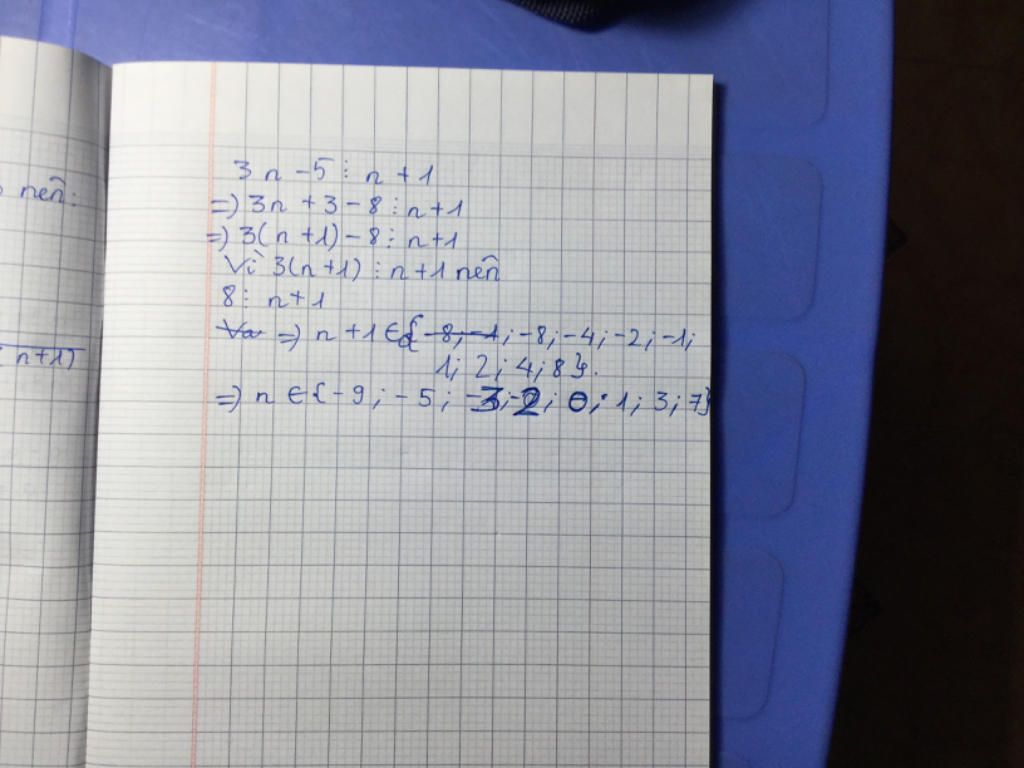 nên:
n+1)
3n - 5 ⋮ n + 1
=) 3n + 3 - 8 ⋮ n + 1
=) 3(n + 1) - 8 ⋮ n + 1
Vì 3(n+1) ⋮ n + 1 nên
8 ⋮ n + 1
=) n + 1 ∈ { -8; -4; -2; -1;
1; 2; 4; 8}.
=) n ∈ {-9; -5; -3; -2; 0; 1; 3; 7}